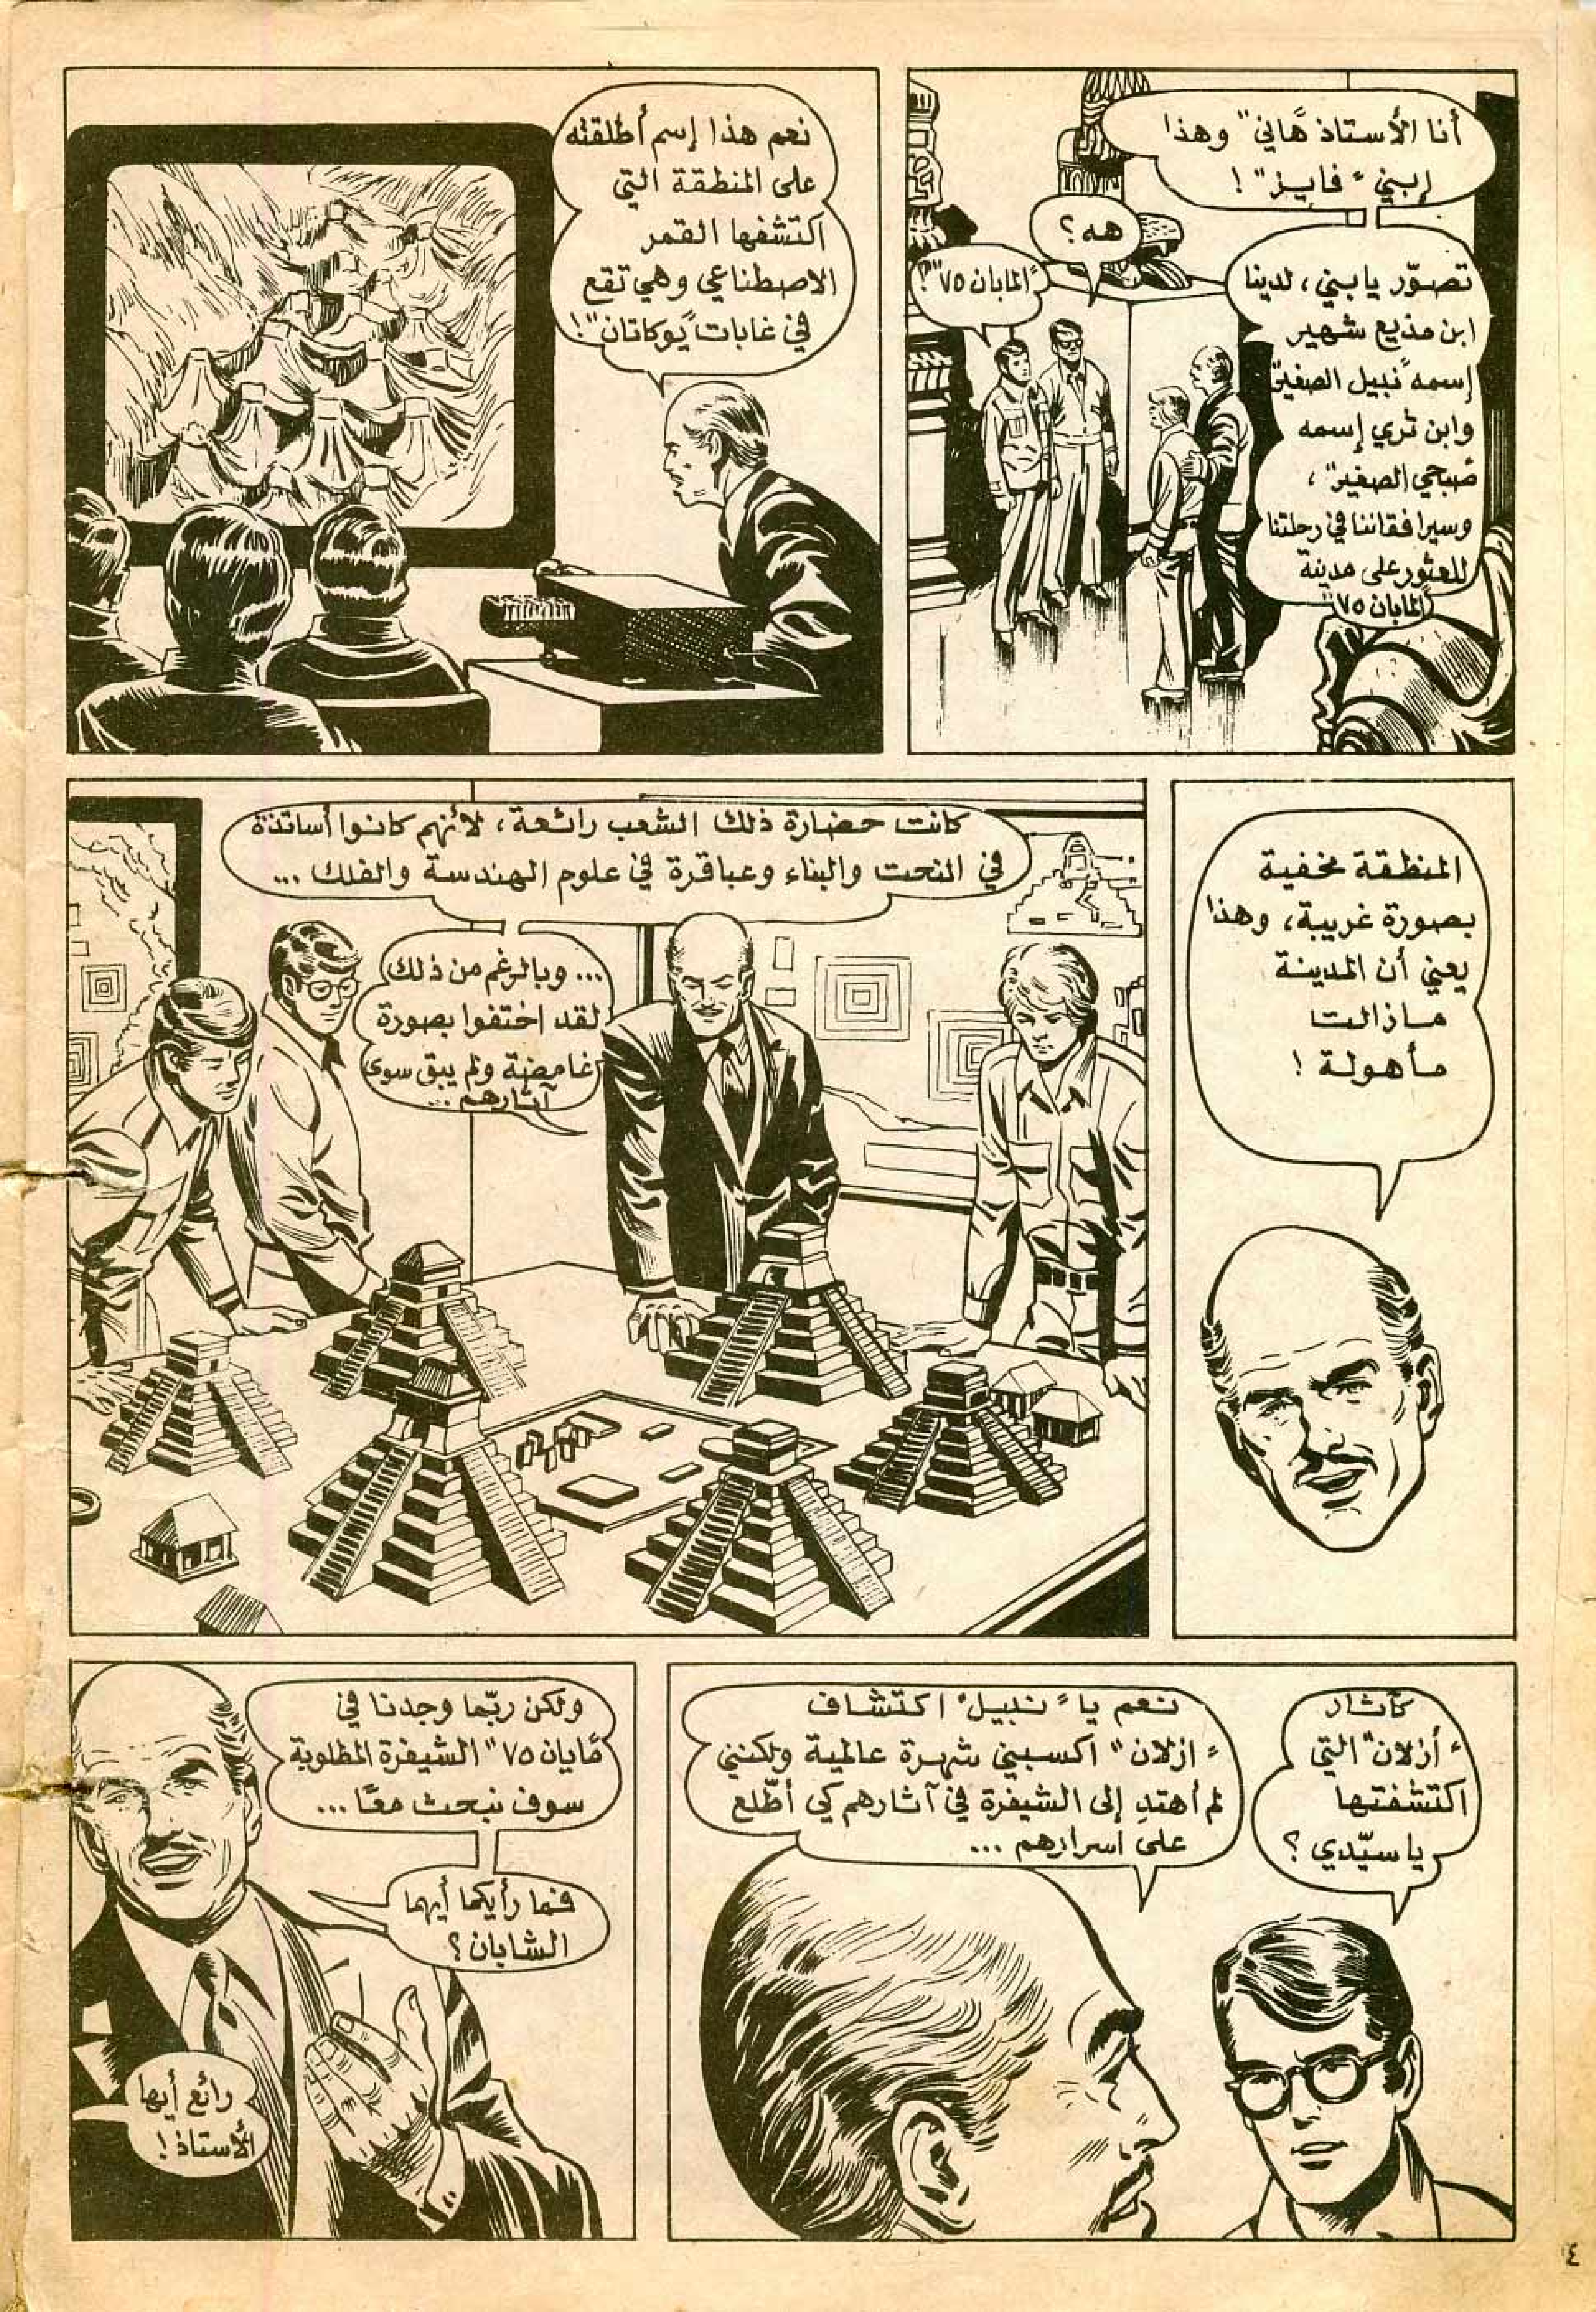 أنا الأستاذ "هاني" وهذا
إبني "فايز"!
تصوّر يا بني، لدينا
ابن مذيع شهير
إسمه "نبيل الصغير"
وابن ثري إسمه
"صبحي الصغير"،
وسيرافقاننا في رحلتنا
للعثور على مدينة
"المايان ٧٥"
هه؟
"المايان ٧٥"؟
نعم هذا إسم أطلقته
على المنطقة التي
اكتشفها القمر
الاصطناعي وهي تقع
في غابات "يوكاتان"!
المنطقة مخفية
بصورة غريبة، وهذا
يعني أن المدينة
مازالت
مأهولة!
كانت حضارة ذلك الشعب رائعة، لأنهم كانوا أساتذة
في النحت والبناء وعباقرة في علوم الهندسة والفلك ...
... وبالرغم من ذلك
لقد اختفوا بصورة
غامضة ولم يبق سوى
آثارهم ...
كآثار
"أزلان" التي
اكتشفتها
يا سيّدي؟
نعم يا "نبيل" اكتشاف
"ازلان" اكسبني شهرة عالمية ولكنني
لم أهتدِ إلى الشيفرة في آثارهم كي أطّلع
على اسرارهم ...
ولكن ربّما وجدنا في
"مايان ٧٥" الشيفرة المطلوبة
سوف نبحث معًا ...
فما رأيكما أيها
الشابان؟
رائع أيها
الأستاذ!
٤